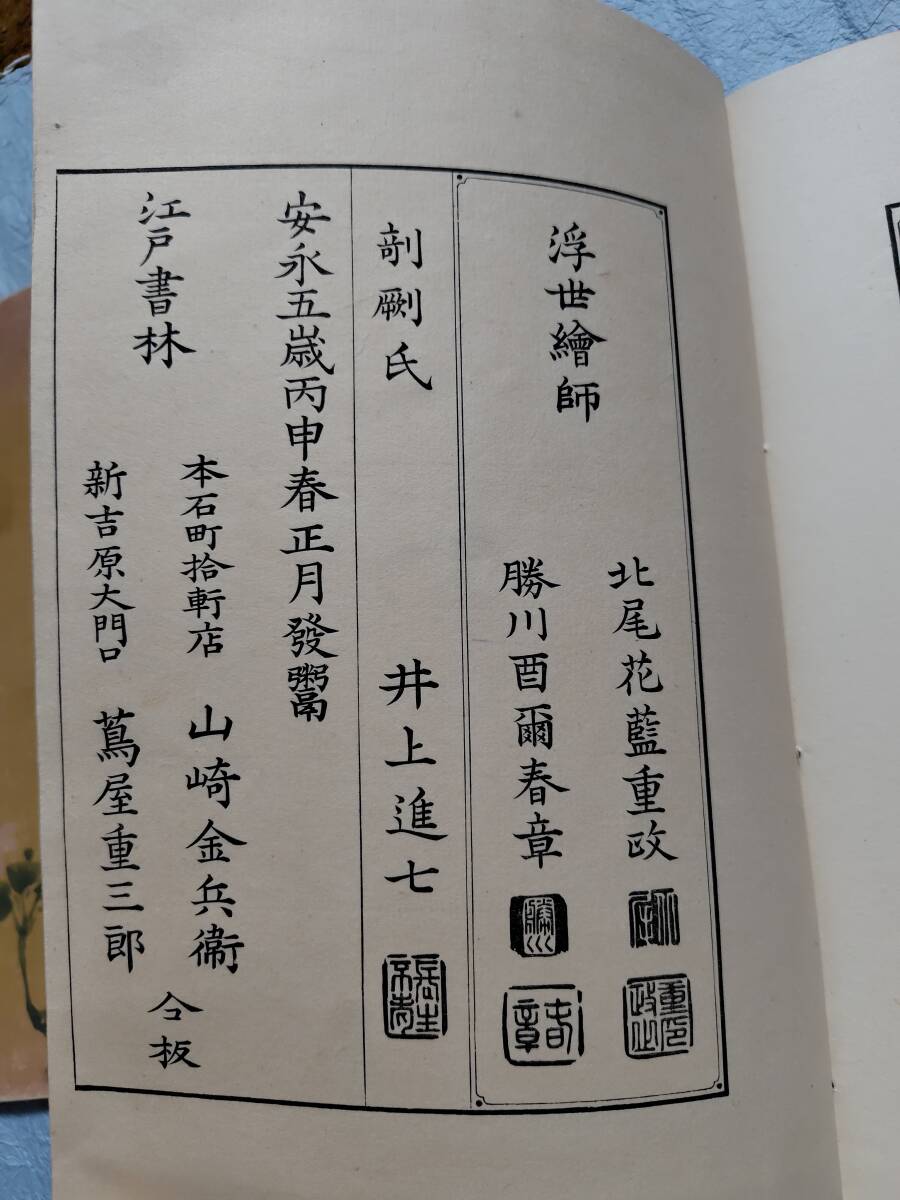 浮世繪師
北尾花藍重政
勝川酉爾春章
勝川
春章
剞劂氏
井上進七
安永五歳丙申春正月發鬻
江戸書林
本石町拾軒店 山崎金兵衛
新吉原大門口 蔦屋重三郎
仝板